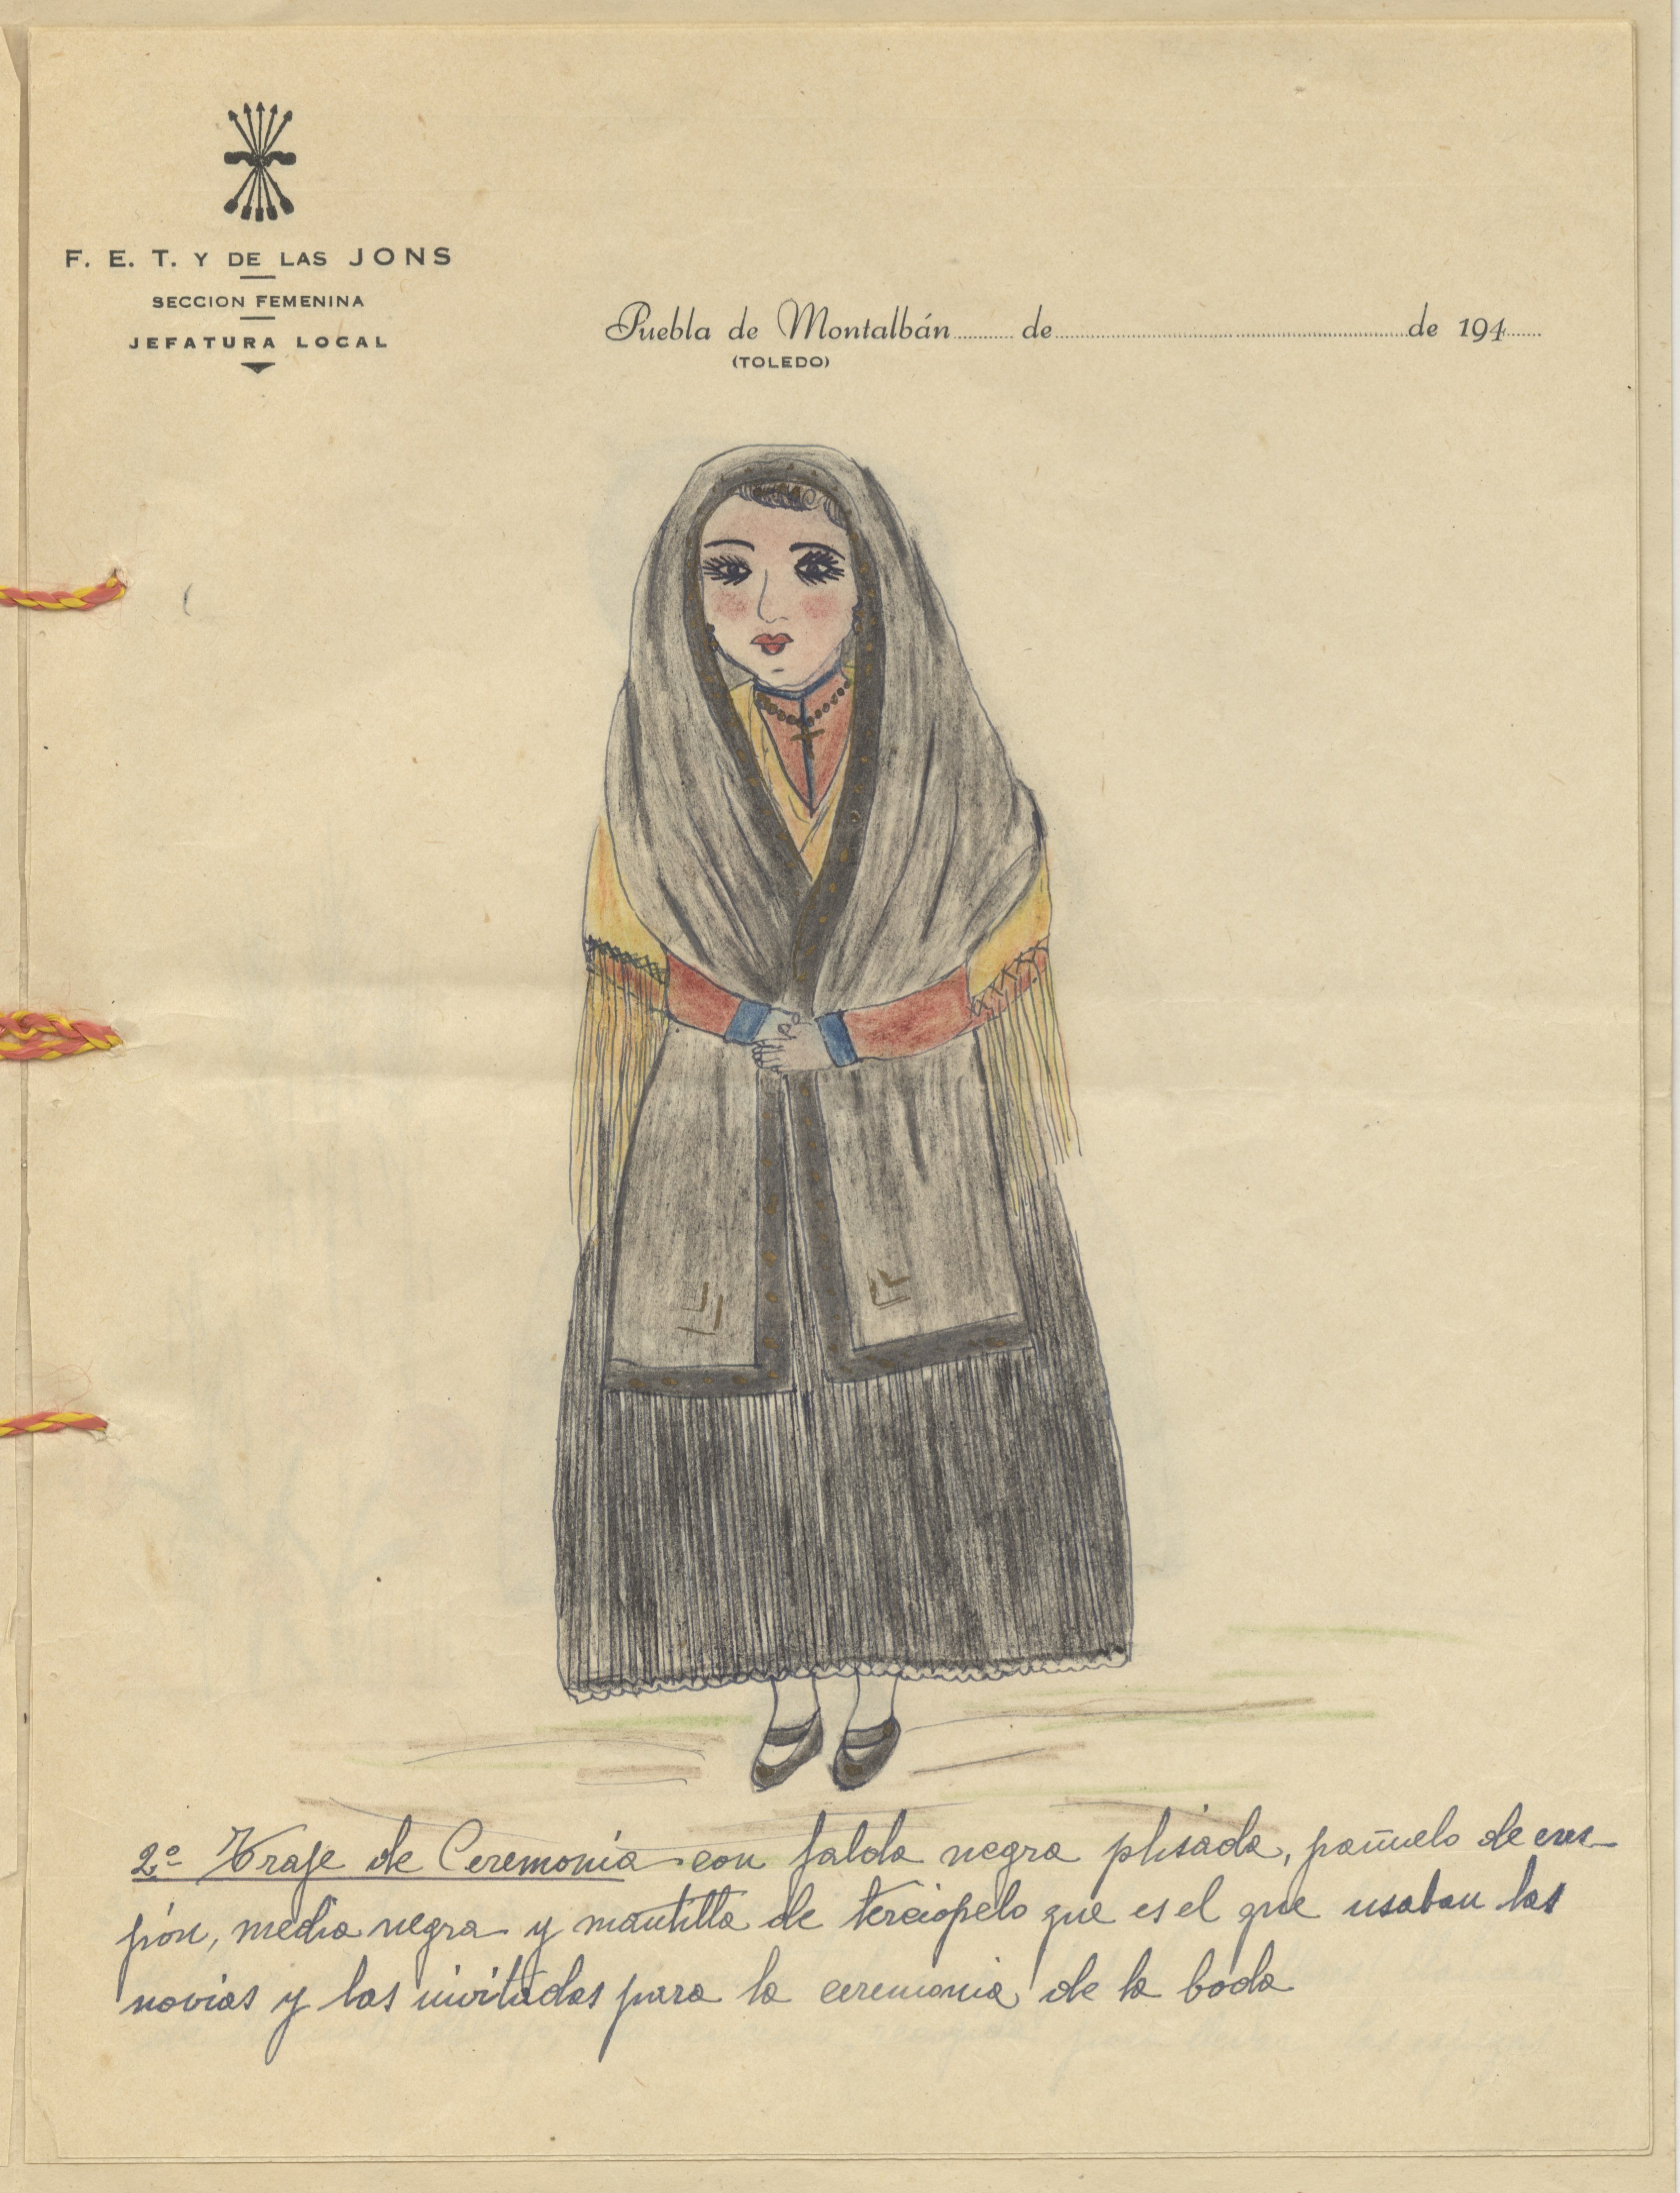 F. E. T. Y DE LAS JONS
SECCION FEMENINA
JEFATURA LOCAL
Puebla de Montalbán ........ de ........................ de 194......
(TOLEDO)
2º Traje de Ceremonia con falda negra plisada, pañuelo de cres-
pón, media negra y mantilla de terciopelo que es el que usaban las
novias y las invitadas para la ceremonia de la boda